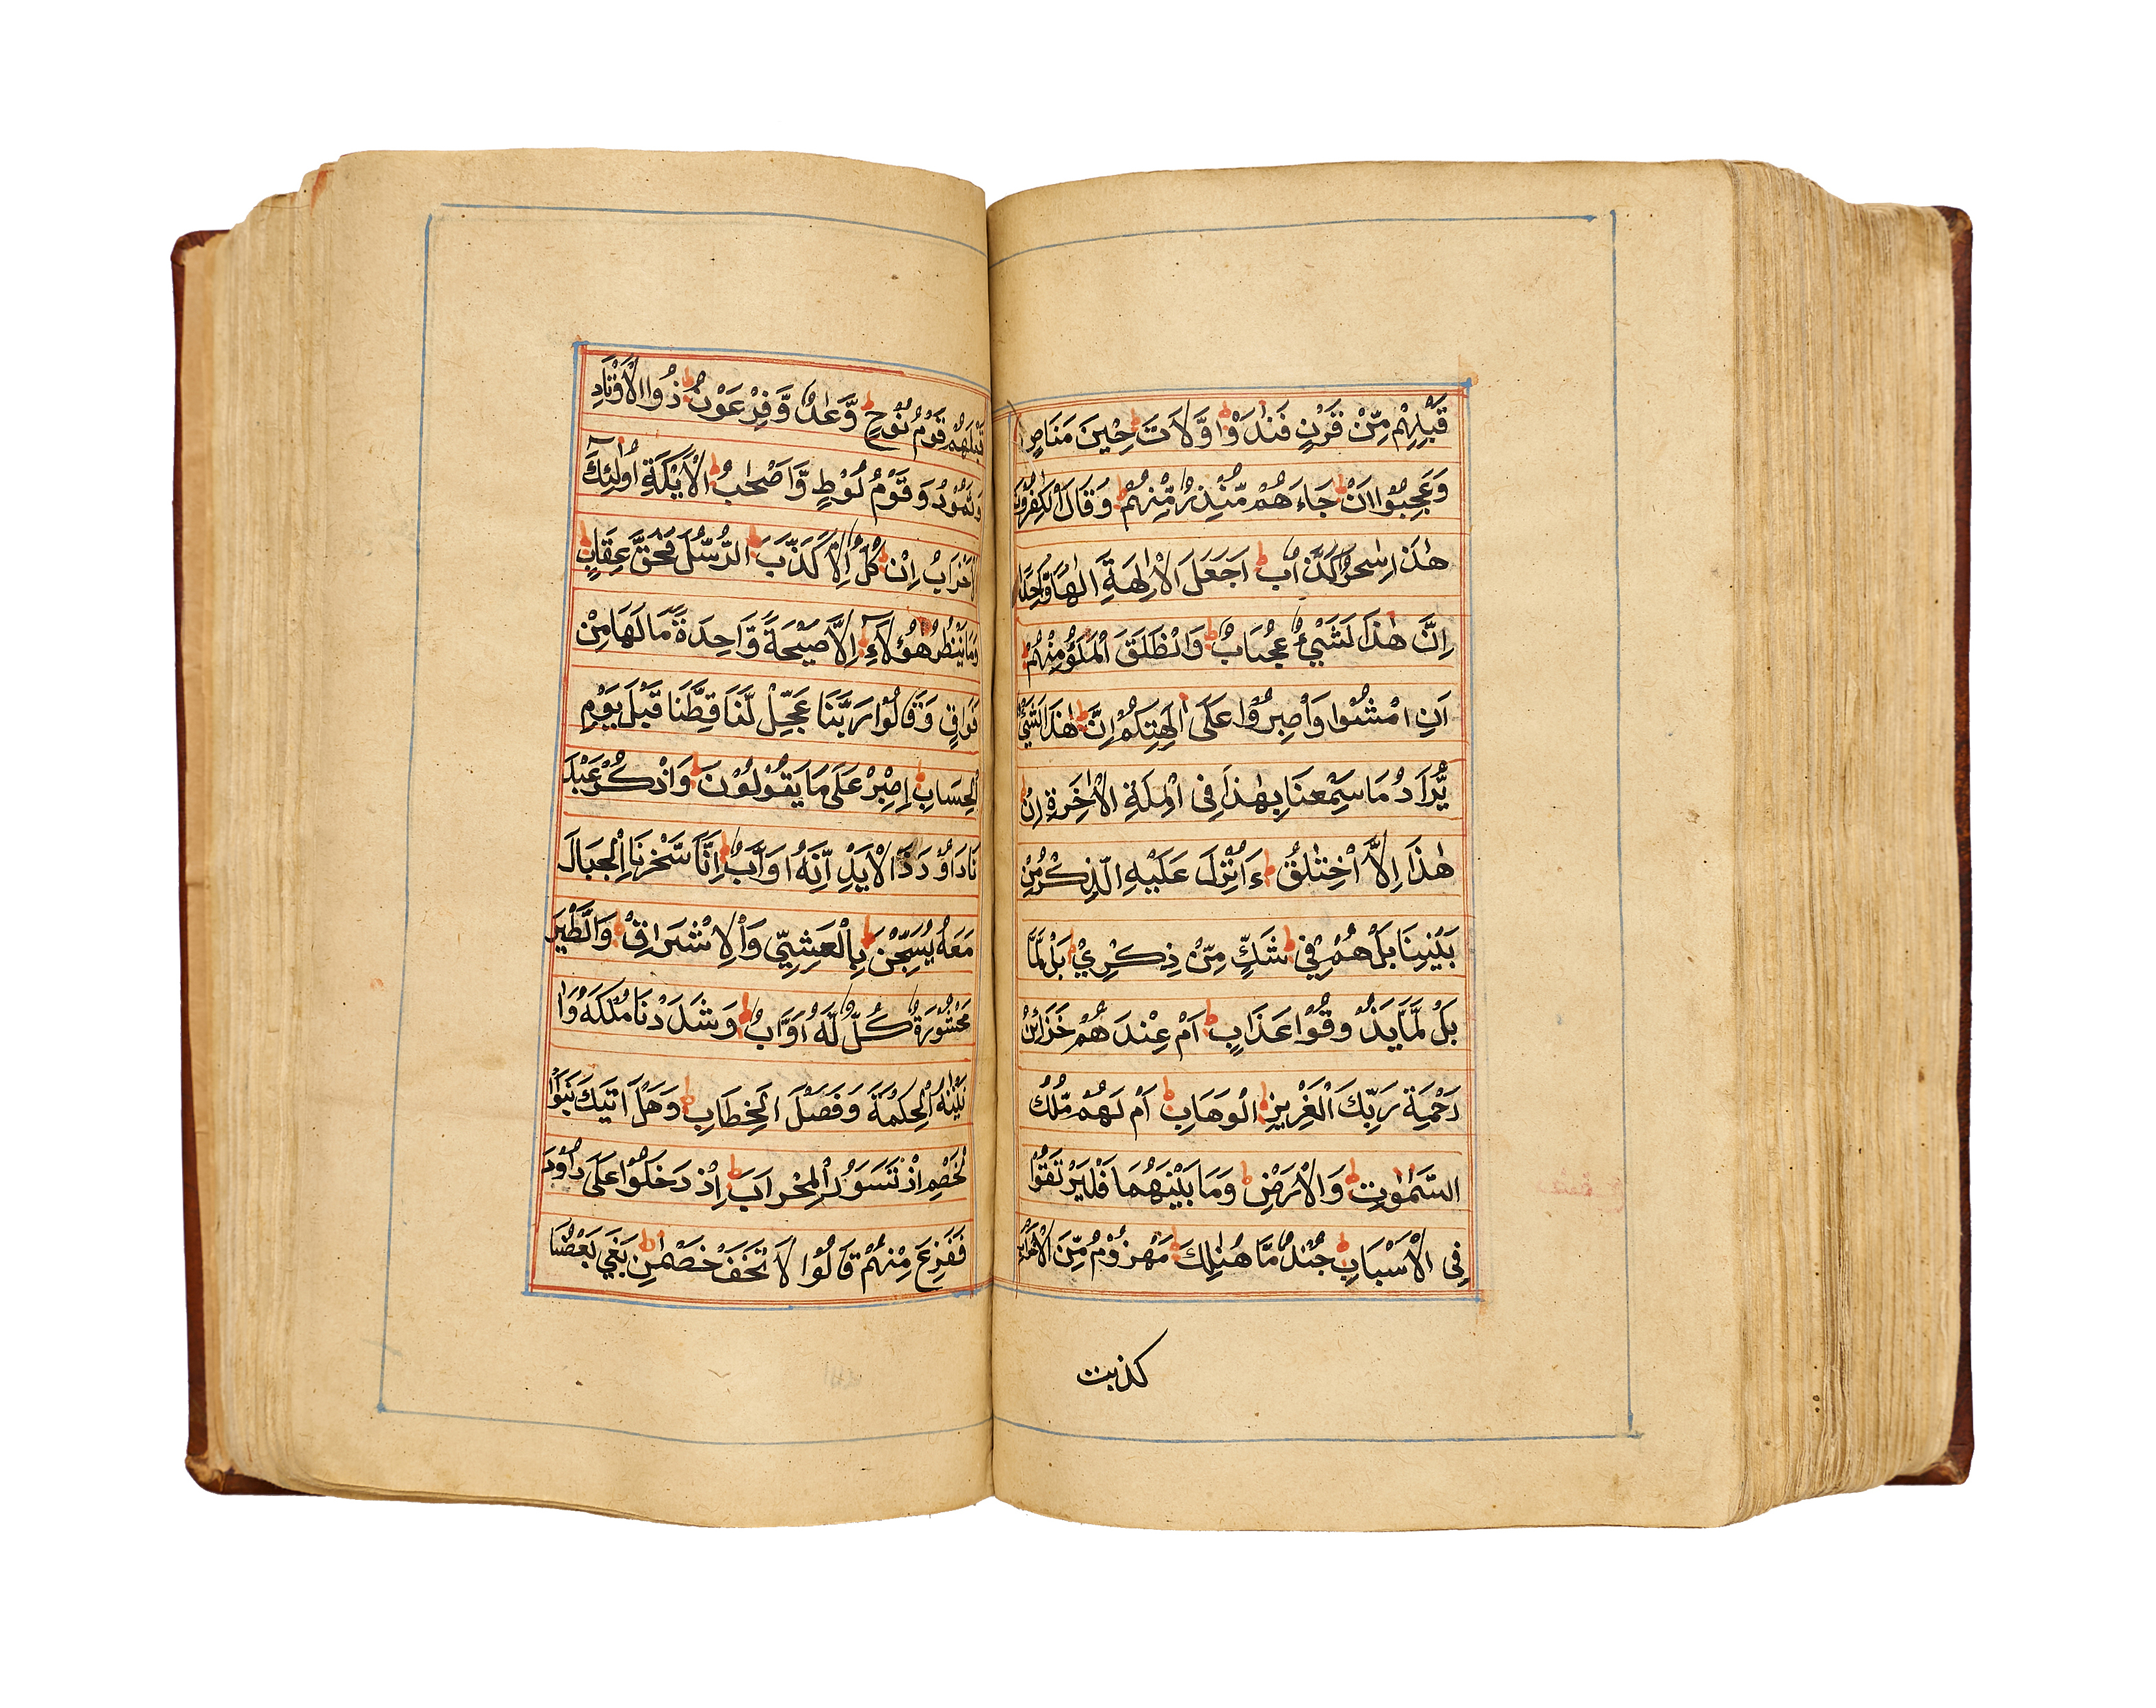 قَبْلِهِمْ مِّنْ قَرْنٍ فَنَادَوْا وَّلَاتَ حِيْنَ مَنَاصٍ
وَعَجِبُوْا اَنْ جَاءَهُمْ مُّنْذِرٌ مِّنْهُمْ وَقَالَ الْكٰفِرُوْنَ
هٰذَا سٰحِرٌ كَذَّابٌ اَجَعَلَ الْاٰلِهَةَ اِلٰهًا وَّاحِدًا
اِنَّ هٰذَا لَشَيْءٌ عُجَابٌ وَانْطَلَقَ الْمَلَؤُ مِنْهُمْ
اَنِ امْشُوْا وَاصْبِرُوْا عَلٰى اٰلِهَتِكُمْ اِنَّ هٰذَا لَشَيْءٌ
يُّرَادُ مَا سَمِعْنَا بِهٰذَا فِى الْمِلَّةِ الْاٰخِرَةِ اِنْ
هٰذَا اِلَّا اخْتِلٰقٌ ءَاُنْزِلَ عَلَيْهِ الذِّكْرُ مِنْ
بَيْنِنَا بَلْ هُمْ فِيْ شَكٍّ مِّنْ ذِكْرِيْ بَلْ لَمَّا
بَلْ لَمَّا يَذُوْقُوْا عَذَابِ اَمْ عِنْدَهُمْ خَزَائِنُ
رَحْمَةِ رَبِّكَ الْعَزِيْزِ الْوَهَابِ اَمْ لَهُمْ مُّلْكُ
السَّمٰوٰتِ وَالْاَرْضِ وَمَا بَيْنَهُمَا فَلْيَرْتَقُوْا
فِى الْاَسْبَابِ جُنْدٌ مَّا هُنَالِكَ مَهْزُوْمٌ مِّنَ الْاَحْزَابِ
كذبت
قَبْلَهُمْ قَوْمُ نُوْحٍ وَّعَادٌ وَّفِرْعَوْنُ ذُوا الْاَوْتَادِ
وَثَمُوْدُ وَقَوْمُ لُوْطٍ وَّاَصْحٰبُ الْاَيْكَةِ اُولٰئِكَ
الْاَحْزَابُ اِنْ كُلٌّ اِلَّا كَذَّبَ الرُّسُلَ فَحَقَّ عِقَابِ
وَمَا يَنْظُرُ هٰؤُلَاءِ اِلَّا صَيْحَةً وَّاحِدَةً مَّا لَهَا مِنْ
فَوَاقٍ وَقَالُوْا رَبَّنَا عَجِّلْ لَّنَا قِطَّنَا قَبْلَ يَوْمِ
الْحِسَابِ اِصْبِرْ عَلٰى مَا يَقُوْلُوْنَ وَاذْكُرْ عَبْدَ
نَا دَاوٗدَ ذَا الْاَيْدِ اِنَّهٗ اَوَّابٌ اِنَّا سَخَّرْنَا الْجِبَالَ
مَعَهٗ يُسَبِّحْنَ بِالْعَشِيِّ وَالْاِشْرَاقِ وَالطَّيْرَ
مَحْشُوْرَةً كُلٌّ لَّهٗ اَوَّابٌ وَشَدَدْنَا مُلْكَهٗ وَا
تَيْنٰهُ الْحِكْمَةَ وَفَصْلَ الْخِطَابِ وَهَلْ اَتٰيكَ نَبَؤُا
الْخَصْمِ اِذْ تَسَوَّرُ الْمِحْرَابَ اِذْ دَخَلُوْا عَلٰى دَاوٗدَ
فَفَزِعَ مِنْهُمْ قَالُوْا لَا تَخَفْ خَصْمٰنِ بَغٰى بَعْضُنَا